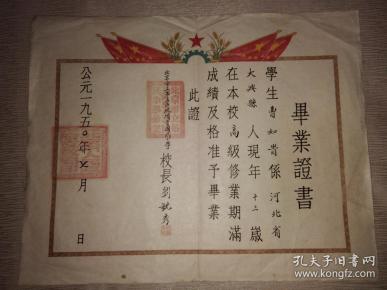 畢業證書
學生曹如貴係河北省
大興縣人現年十二歲
在本校高級修業期滿
成績及格准予畢業
此證
校長劉
公元一九五〇年七月 日
孔夫子旧书网